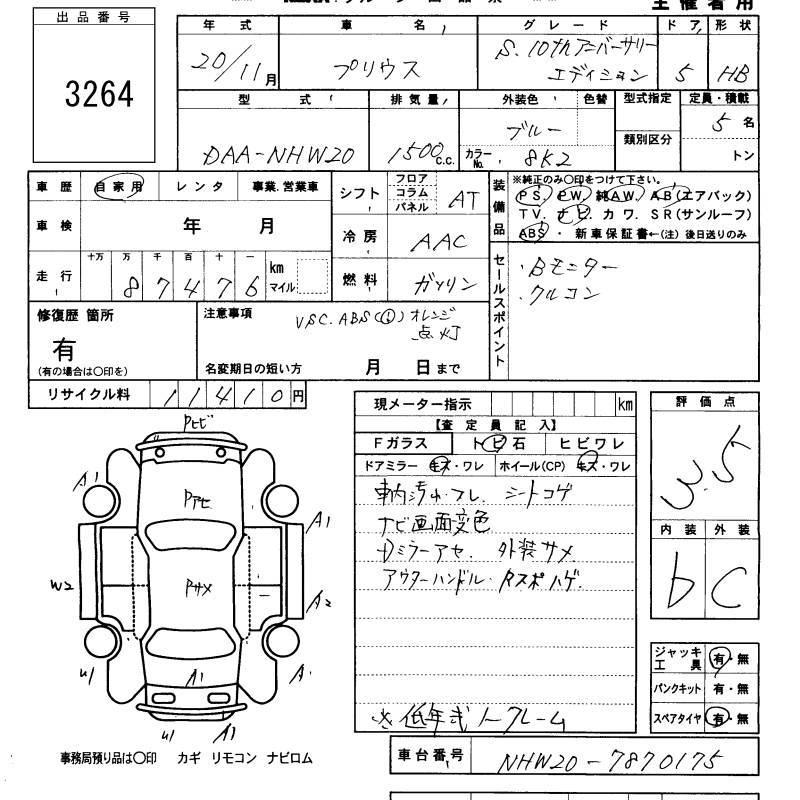 主催者用
出品番号
3264
年式 車名 グレード ドア 形状
20/11月 プリウス S.10thアニバーサリーエディション 5 HB
型式 排気量 外装色 色替 型式指定 定員・積載
DAA-NHW20 1500c.c. ブルー カラーNo. 8K2 類別区分 5名
トン
車歴 自家用 レンタ 事業.営業車
シフト フロア コラム パネル AT
車検 年 月
冷房 AAC
走行 十万 万 千 百 十 一
8 7 4 7 6 km マイル
燃料 ガソリン
装備品
※純正のみ〇印をつけて下さい。
PS. PW. 純AW. AB(エアバック)
TV. ナビ. カワ. SR(サンルーフ)
ABS・新車保証書←(注) 後日送りのみ
セールスポイント
・Bモニター
・クルコン
修復歴 箇所
有
(有の場合は〇印を)
注意事項
VSC.ABS(!)オレンジ
点灯
名変期日の短い方 月 日まで
リサイクル料 11410円
現メーター指示 km
【査定員記入】
Fガラス トビ石 ヒビワレ
ドアミラー キズ・ワレ ホイール(CP) キズ・ワレ
車内汚れ・フレ. シートコゲ
ナビ画面変色
Dミラーアセ. 外装サメ
アウターハンドル・Rスポハゲ.
※低年式ノークレーム
評価点
3.5
内装 外装
b C
ジャッキ工具 有・無
パンクキット 有・無
スペアタイヤ 有・無
Pヒビ
A1
Pアセ
A1
W2
Pサメ
A2
A1
A1
事務局預り品は〇印 カギ リモコン ナビロム
車台番号 NHW20-7870175